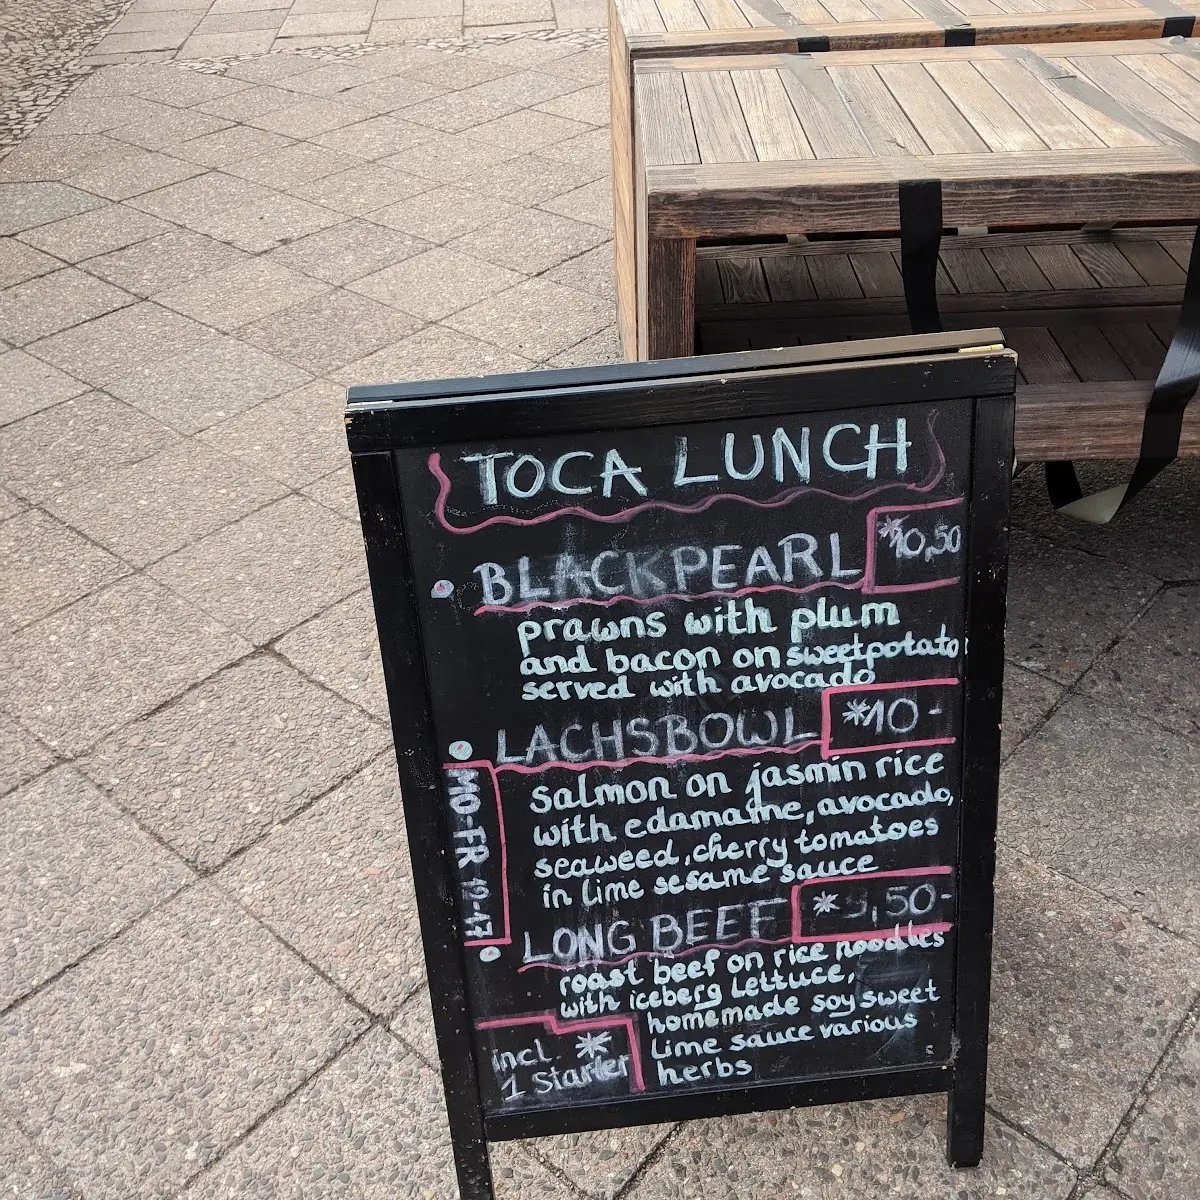 TOCA LUNCH
BLACKPEARL *10,50
prawns with plum
and bacon on sweetpotato
served with avocado
LACHSBOWL *10-
salmon on jasmin rice
with edamame, avocado,
seaweed, cherry tomatoes
in lime sesame sauce
MO-FR 12-17
LONG BEEF *9,50-
roast beef on rice noodles
with iceberg lettuce,
homemade soy sweet
lime sauce various
herbs
incl. *
1 Starter